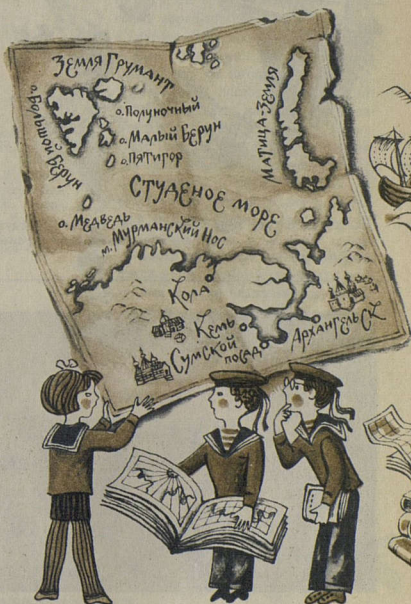 Земля Грумант
о. Большой Берун
о. Полуночный
о. Малый Берун
о. Пятигор
Матица-Земля
Студеное море
о. Медведь
м. Мурманский Нос
Кола
Кемь
Сумской
посад
Архангельск